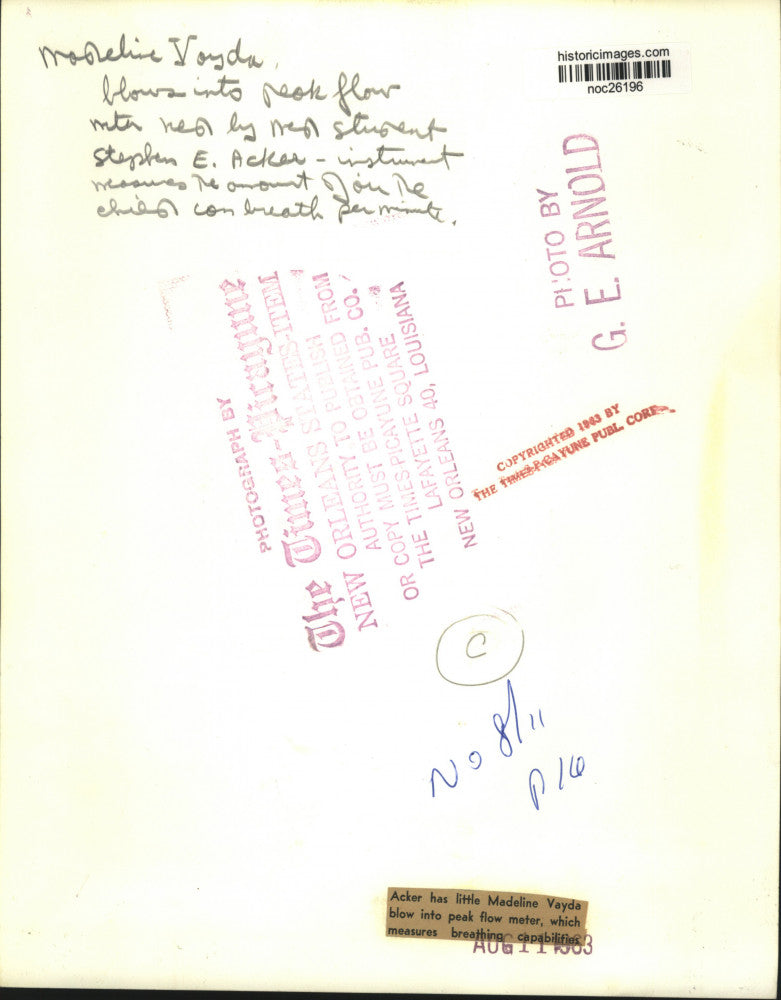 Madeline Vayda,
blows into peak flow
meter held by med student
Stephen E. Acker - instrument
measures the amount of air the
child can breath per minute.
historicimages.com
noc26196
PHOTO BY
G. E. ARNOLD
PHOTOGRAPH BY
The Times-Picayune
NEW ORLEANS STATES-ITEM
AUTHORITY TO PUBLISH
OR COPY MUST BE OBTAINED FROM
THE TIMES PICAYUNE PUB. CO.
LAFAYETTE SQUARE
NEW ORLEANS 40, LOUISIANA
COPYRIGHTED 1963 BY
THE TIMES-PICAYUNE PUBL. CORP.
C
NO 8/11
P 16
Acker has little Madeline Vayda
blow into peak flow meter, which
measures breathing capabilities.
AUG 11 1963